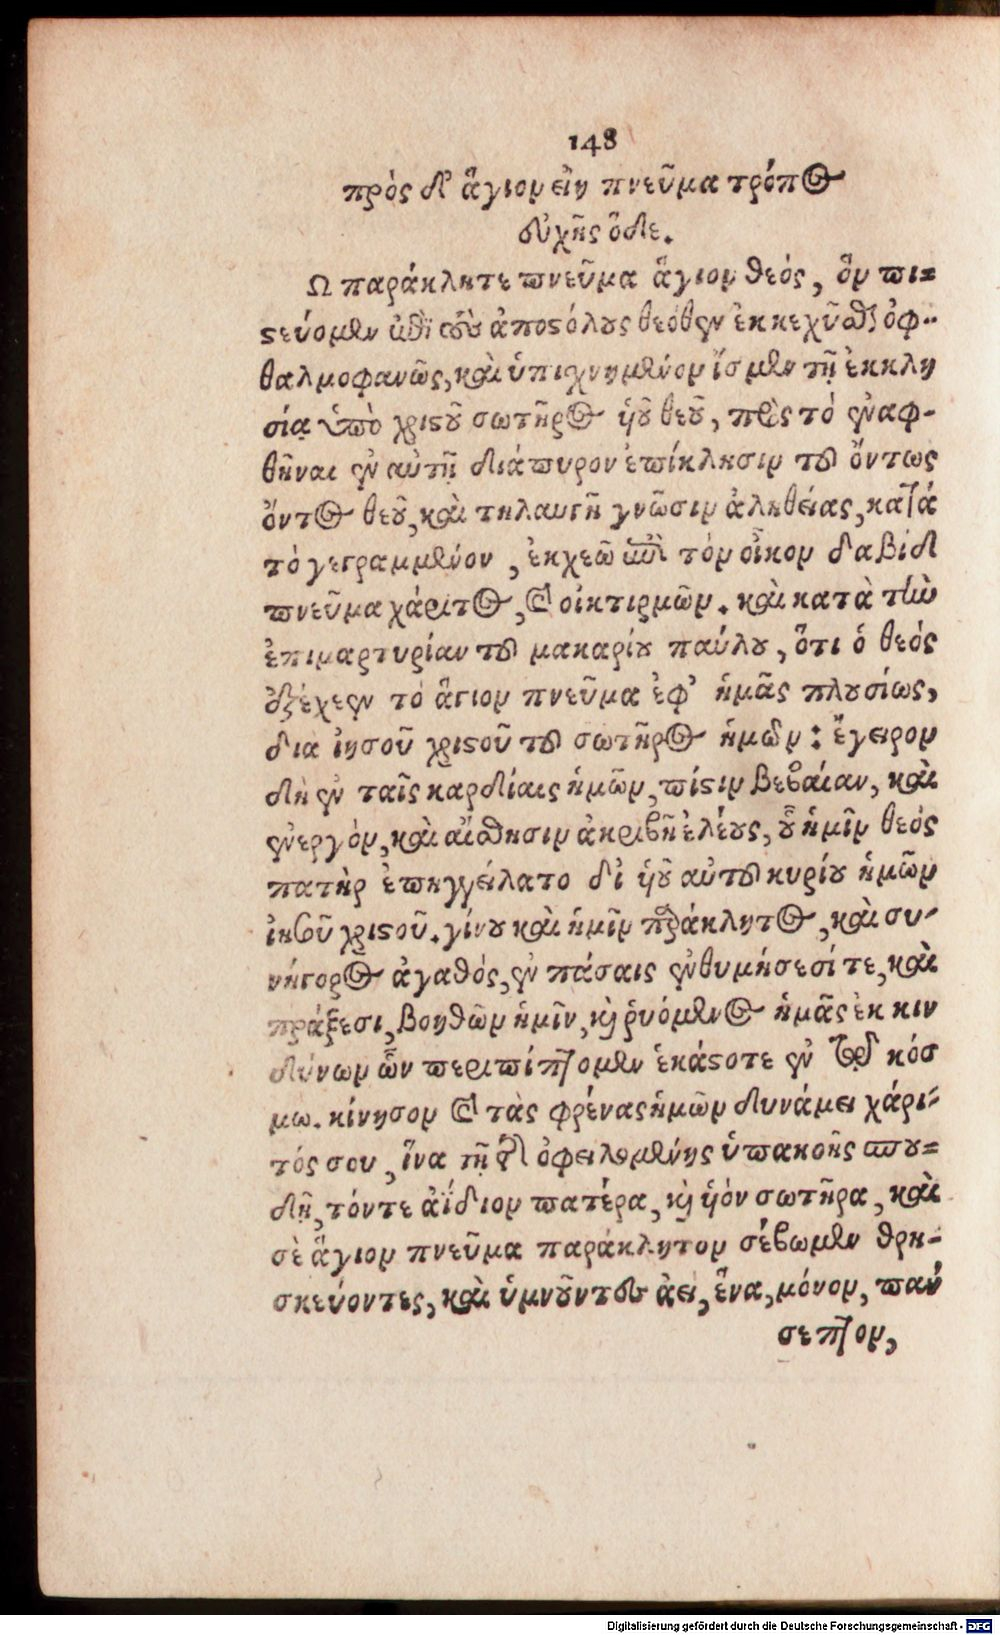 148
πρὸς δ' ἅγιον εἴη πνεῦμα τρόπος
εὐχῆς ὅδε.
Ω παράκλητε πνεῦμα ἅγιον θεός, ὃν πι=
στεύομεν ἐπὶ τοὺς ἀποστόλους θεόθεν ἐκκεχῦσθαι ὀφ-
θαλμοφανῶς, καὶ ὑπισχνημένον ἴσμεν τῇ ἐκκλη
σίᾳ ὑπὸ χριστοῦ σωτῆρος ἡοῦ θεοῦ, πρὸς τὸ ἐναφ-
θῆναι ἐν αὐτῇ διάπυρον ἐπίκλησιν τοῦ ὄντως
ὄντος θεοῦ, καὶ τηλαυγῆ γνῶσιν ἀληθείας, κατά
τὸ γεγραμμένον, ἐκχεῶ ἐπὶ τὸν οἶκον δαβίδ
πνεῦμα χάριτος, καὶ οἰκτιρμῶν. καὶ κατὰ τὴν
ἐπιμαρτυρίαν τοῦ μακαρίου παύλου, ὅτι ὁ θεὸς
ἐξέχεεν τὸ ἅγιον πνεῦμα ἐφ' ἡμᾶς πλουσίως,
δια ἰησοῦ χριστοῦ τοῦ σωτῆρος ἡμῶν: ἔγειρον
δὴ ἐν ταῖς καρδίαις ἡμῶν, πίστιν βεβαίαν, καὶ
ἐνεργὸν, καὶ αἴσθησιν ἀκριβῆ ἐλέους, οὗ ἡμῖν θεὸς
πατὴρ ἐπηγγείλατο δι ἡοῦ αὐτοῦ κυρίου ἡμῶν
ἰησοῦ χριστοῦ. γίνου καὶ ἡμῖν παράκλητος, καὶ συ-
νήγορος ἀγαθὸς, ἐν πάσαις ἐνθυμήσεσί τε, καὶ
πράξεσι, βοηθῶν ἡμῖν, καὶ ῥυόμενος ἡμᾶς ἐκ κιν
δύνων ὧν περιπίπτομεν ἑκάστοτε ἐν τῷδε κόσ
μω. κίνησον καὶ τὰς φρένας ἡμῶν δυνάμει χάρι-
τός σου, ἵνα τῇ ὀφειλομένης ὑπακοῆς σπου=
δῇ, τόντε ἀΐδιον πατέρα, καὶ ἡὸν σωτῆρα, καὶ
σὲ ἅγιον πνεῦμα παράκλητον σέβωμεν θρη-
σκεύοντες, καὶ ὑμνοῦντες ἀεὶ, ἕνα, μόνον, παν
σεπτον,
Digitalisierung gefördert durch die Deutsche Forschungsgemeinschaft - DFG